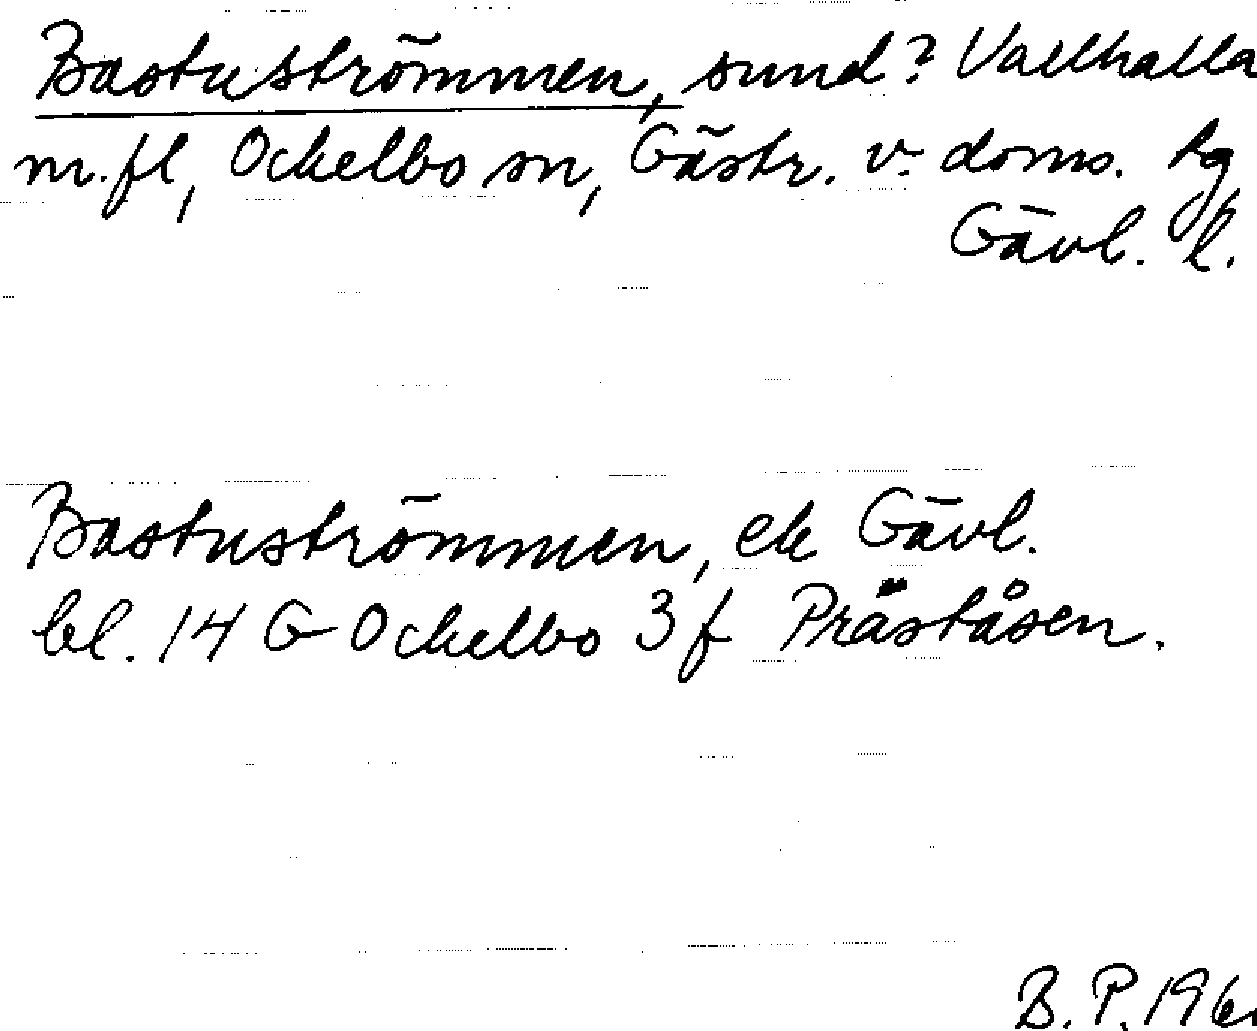 Bastuströmmen, sund? Vallhalla
m.fl, Ockelbo sn, Gästr. v. doms. tg
Gävl. l.
Bastuströmmen, ek Gävl.
bl. 14 G Ockelbo 3 f Präståsen.
B. P. 196